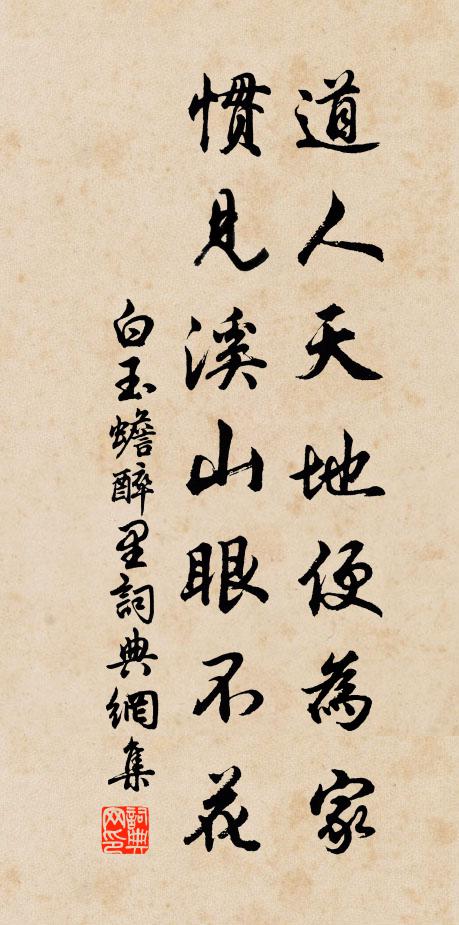 道人天地便為家
慣見溪山眼不花
白玉蟾醉里詞典網集
詞典
网印